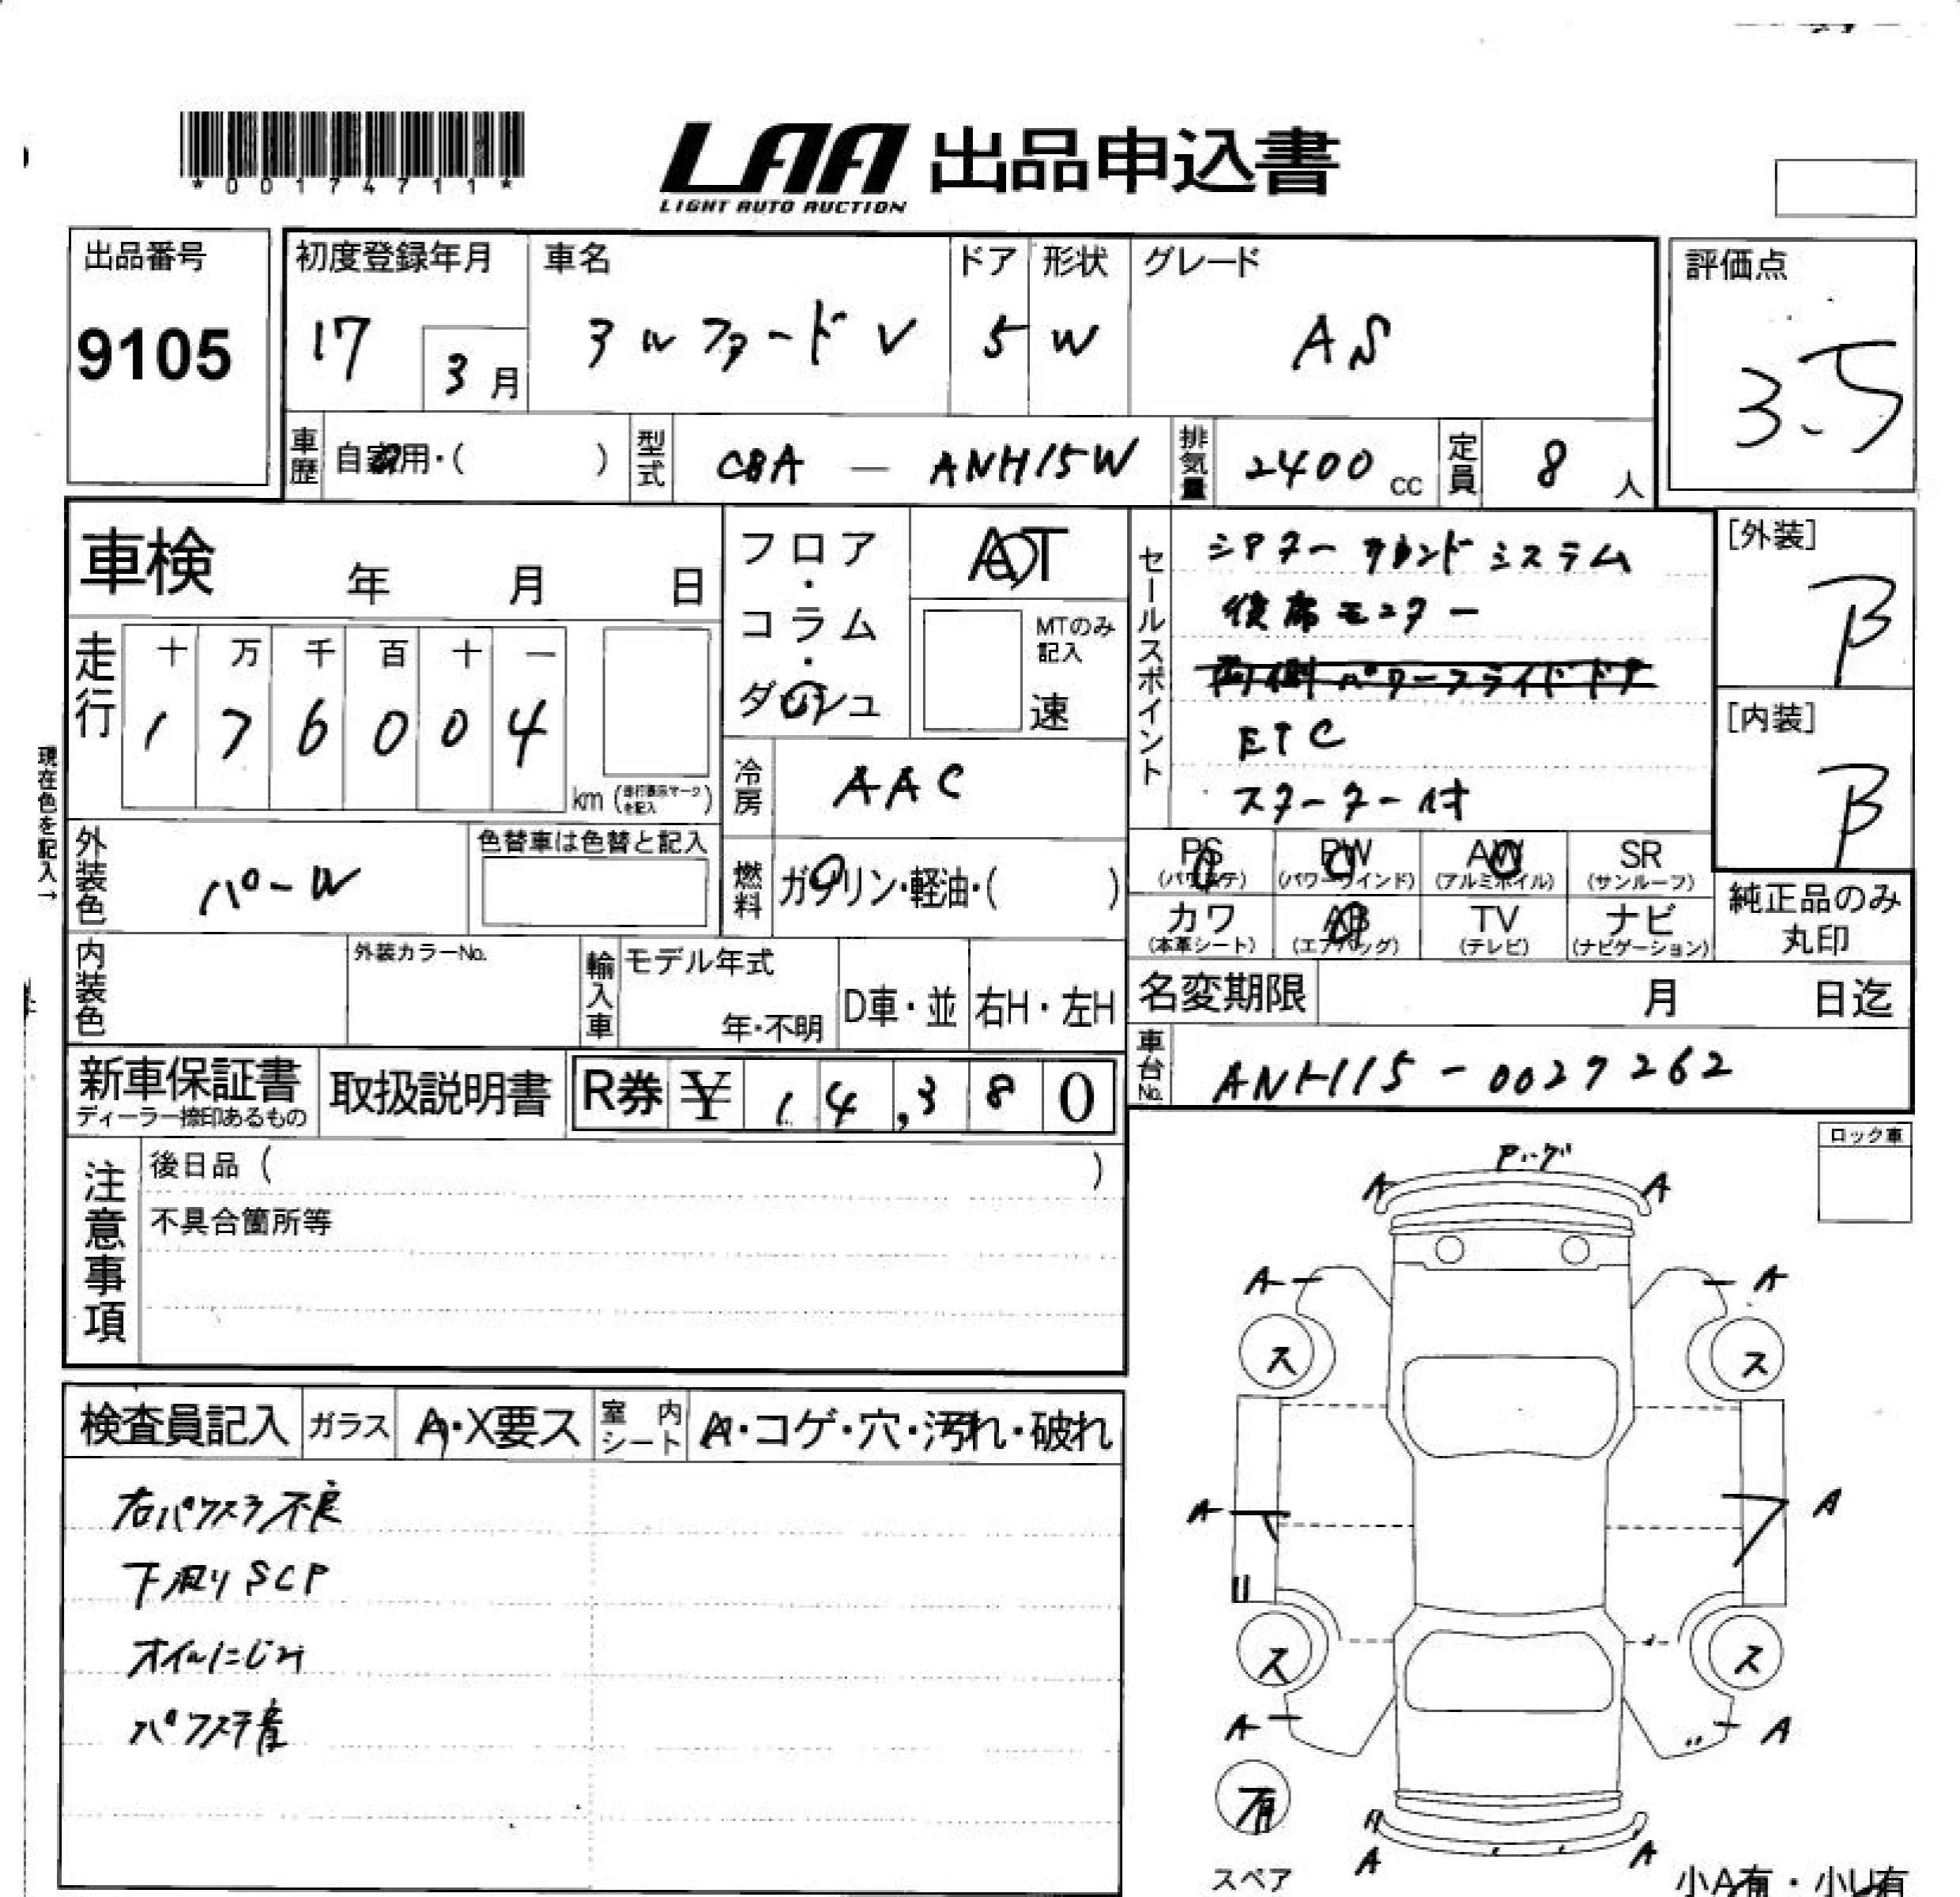 *00174711*
LAA 出品申込書
LIGHT AUTO AUCTION
出品番号
9105
初度登録年月
17
3月
車名
アルファードV
ドア
5
形状
W
グレード
AS
評価点
3.5
車歴
自家用・( )
型式
CBA — ANH15W
排気量
2400 cc
定員
8 人
車検 年 月 日
走行
十 万 千 百 十 一
1 7 6 0 0 4
km (走行表示マークを記入)
フロア・コラム・ダッシュ
AT
MTのみ記入
速
冷房
AAC
セールスポイント
シアターサウンドシステム
後席モニター
両側パワースライドドア
ETC
スターター付
[外装]
B
[内装]
B
現在色を記入→
外装色
パール
色替車は色替と記入
燃料
ガソリン・軽油・( )
PS
(パワステ)
PW
(パワーウインド)
AW
(アルミホイル)
SR
(サンルーフ)
カワ
(本革シート)
AB
(エアバッグ)
TV
(テレビ)
ナビ
(ナビゲーション)
純正品のみ
丸印
内装色
外装カラーNo.
輸入車
モデル年式
年・不明
D車・並
右H・左H
名変期限 月 日迄
新車保証書
ディーラー捺印あるもの
取扱説明書
R券 ¥ 14,380
車台No.
ANH15-0027262
注意事項
後日品 ( )
不具合箇所等
ロック車
検査員記入
ガラス
A・X要ス
室内シート
A・コゲ・穴・汚れ・破れ
右パワスラ不良
下廻りSCP
オイルにじみ
パワステ音
A A
A A
ス ス
A A
ス ス
A A
有
スペア
A A
小A有・小U有